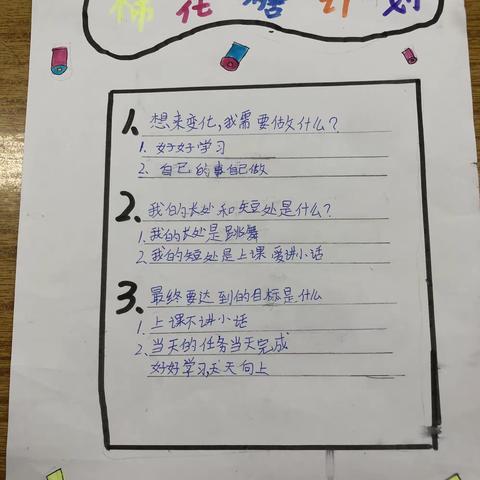 化 计 划
1. 想来变化,我需要做什么?
1. 好好学习
2. 自己的事自己做
2. 我的长处和短处是什么?
1.我的长处是跳舞
2.我的短处是上课爱讲小话
3. 最终要达到的目标是什么
1. 上课不讲小话
2.当天的任务当天完成
好好学习,天天向上